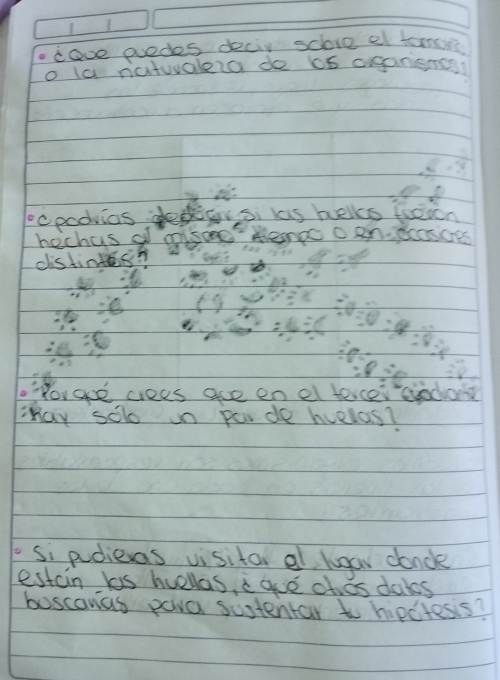 • ¿Que puedes decir sobre el tamaño
o la naturaleza de los organismos?
• ¿podrías deducir si las huellas fueron
hechas al mismo tiempo o en ocasiones
distintas?
• Porqué crees que en el tercer cuadrante
hay sólo un par de huellas?
• Si pudieras visitar el lugar donde
están las huellas, ¿qué otros datos
buscarías para sustentar tu hipótesis?